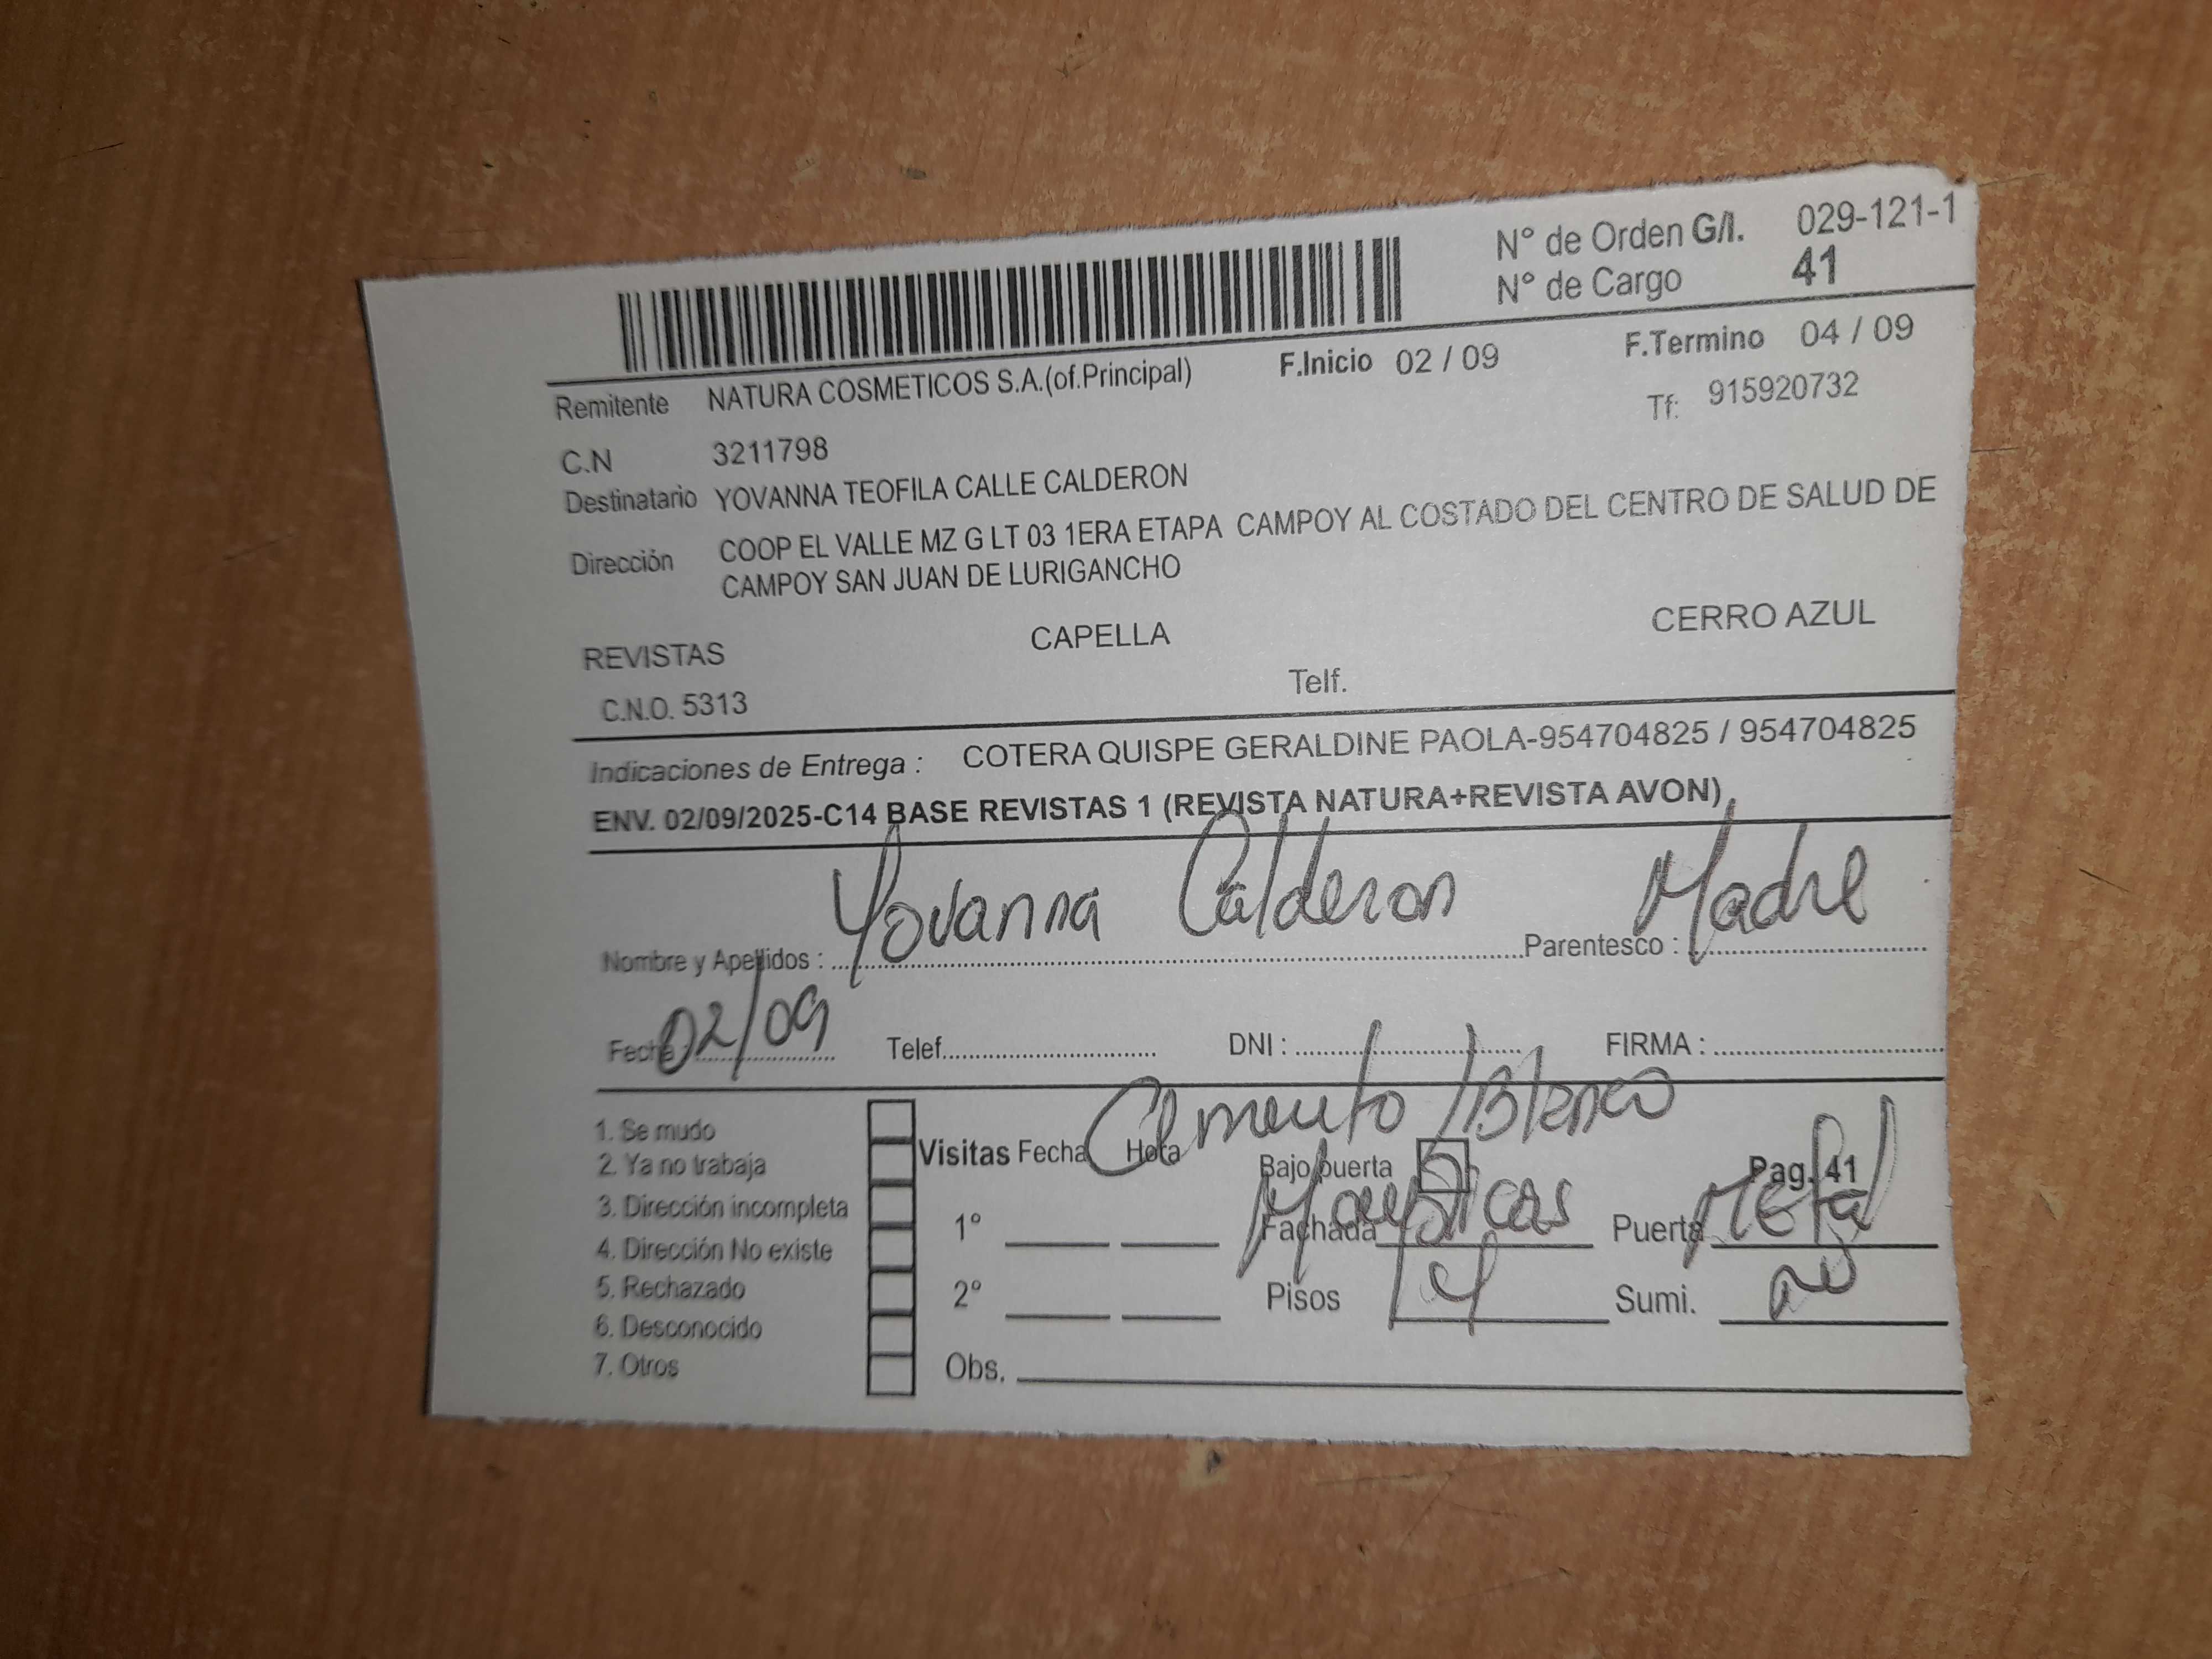 N° de Orden G/I. 029-121-1
N° de Cargo 41
F.Inicio 02 / 09 F.Termino 04 / 09
Remitente NATURA COSMETICOS S.A.(of.Principal) Tf: 915920732
C.N 3211798
Destinatario YOVANNA TEOFILA CALLE CALDERON
Dirección COOP EL VALLE MZ G LT 03 1ERA ETAPA CAMPOY AL COSTADO DEL CENTRO DE SALUD DE
CAMPOY SAN JUAN DE LURIGANCHO
REVISTAS CAPELLA CERRO AZUL
C.N.O. 5313 Telf.
Indicaciones de Entrega : COTERA QUISPE GERALDINE PAOLA-954704825 / 954704825
ENV. 02/09/2025-C14 BASE REVISTAS 1 (REVISTA NATURA+REVISTA AVON)
Nombre y Apellidos : Yovanna Calderon Parentesco : Madre
Fecha 02/09 Telef. DNI : FIRMA :
Cemento /Blanco
1. Se mudo
2. Ya no trabaja
3. Dirección incompleta
4. Dirección No existe
5. Rechazado
6. Desconocido
7. Otros
Visitas Fecha Hora Bajo puerta Pag. 41
1° Fachada Puerta Metal
2° Pisos 4 Sumi.
Obs.